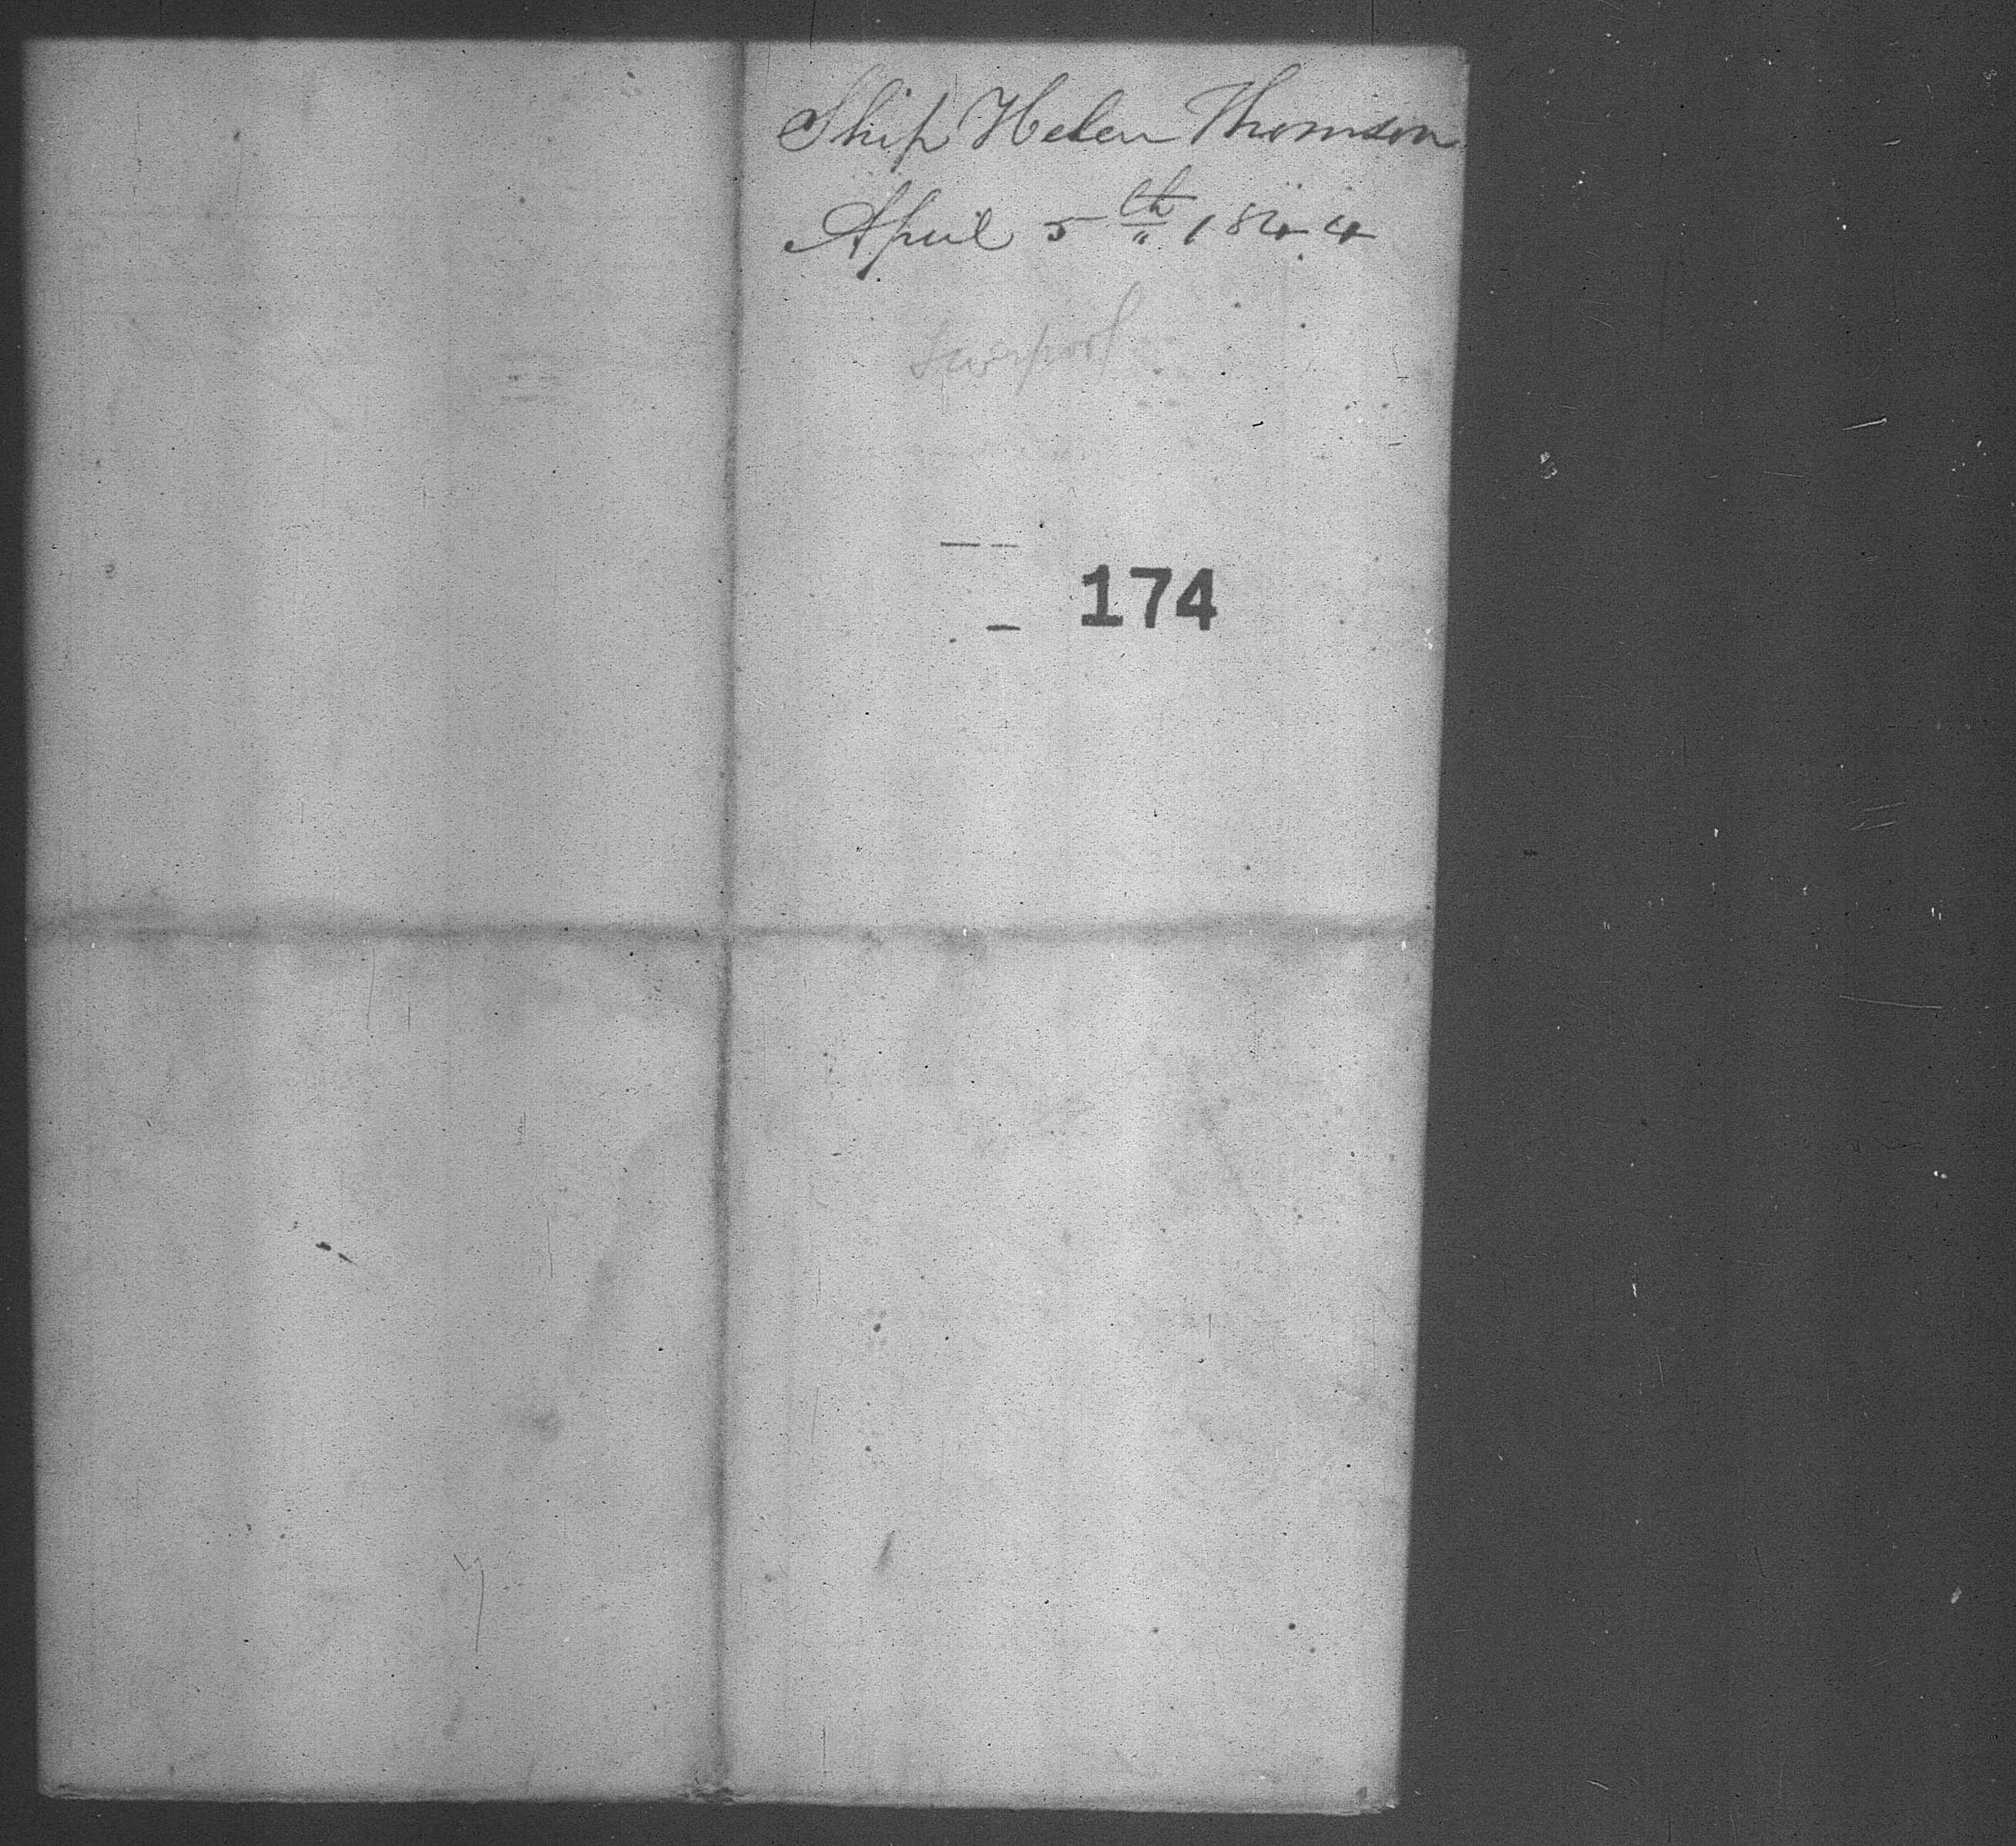 Ship Helen Thomson
April 5th 1844
Liverpool
174